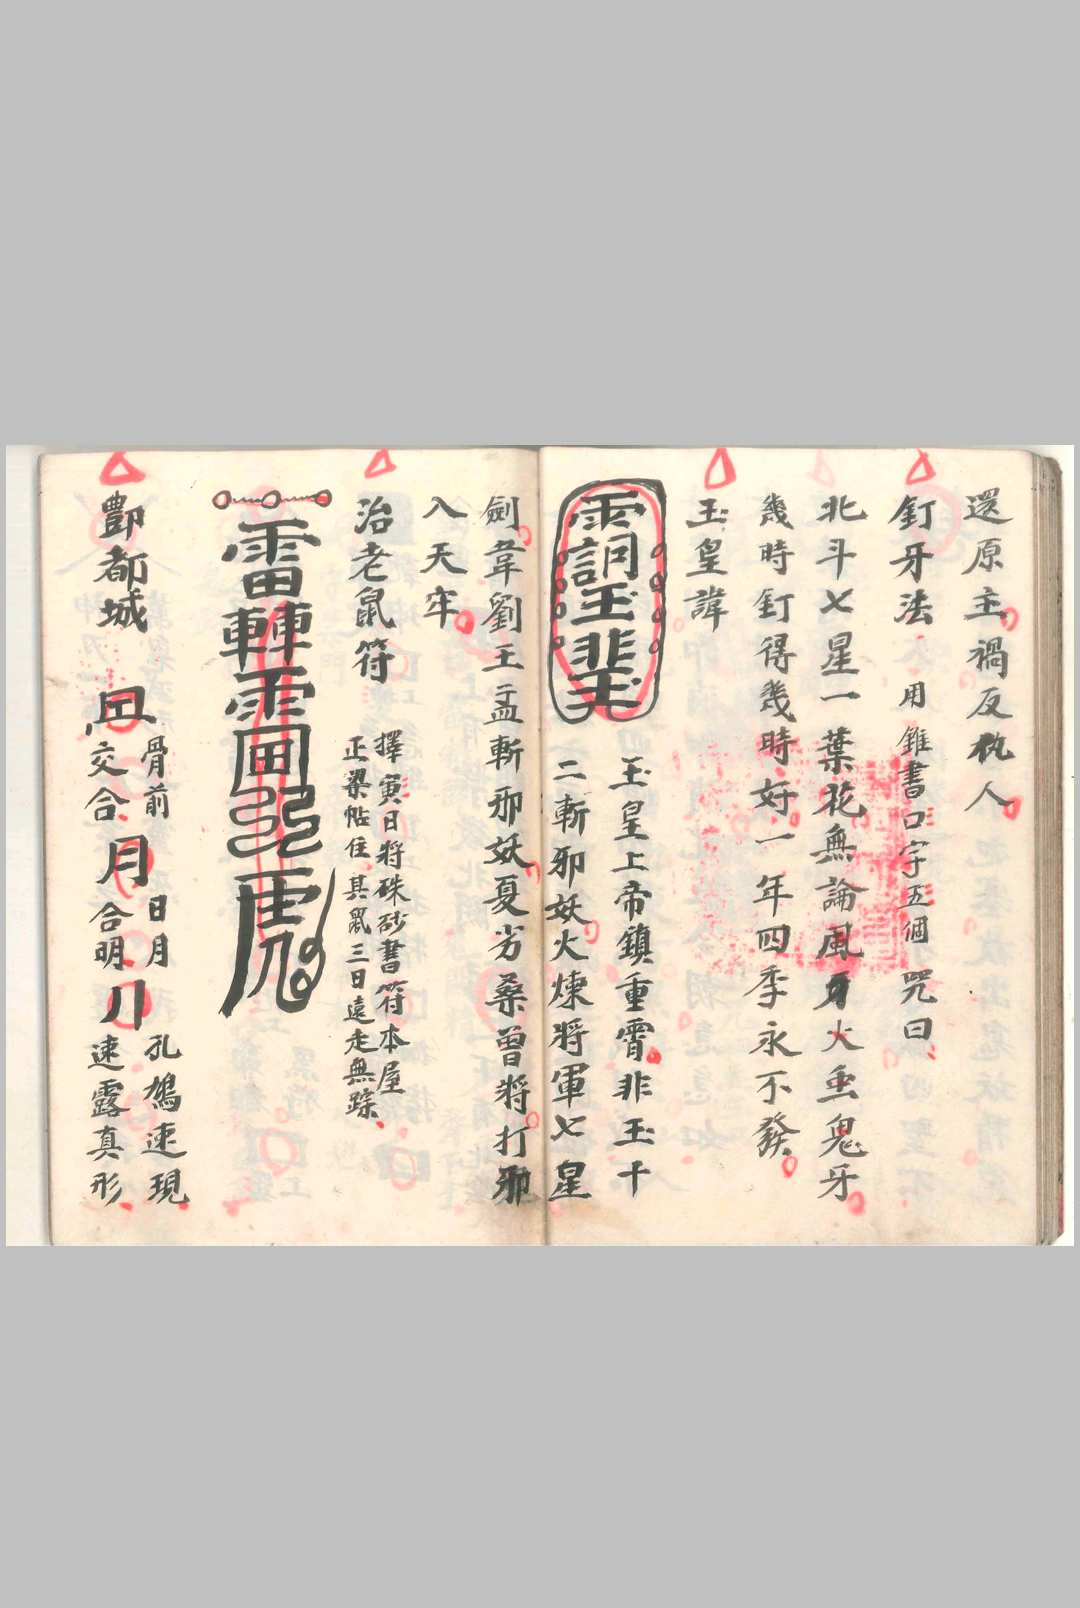 還原主禍反仇人
釘牙法 用錐書口字五個 咒曰
北斗七星一葉花無論風牙火虫鬼牙
幾時釘得幾時好一年四季永不發
玉皇諱
玉皇上帝鎮重霄非玉干
二斬邪妖火煉將軍七星
劍韋劉王孟斬邪妖夏劣桑曾將打邪
入天牢
治老鼠符
擇寅日將硃砂書符本屋
正梁帖住其鼠三日遠走無踪
酆都城
骨前 日月 孔鳩速現
交合 月 合明 速露真形